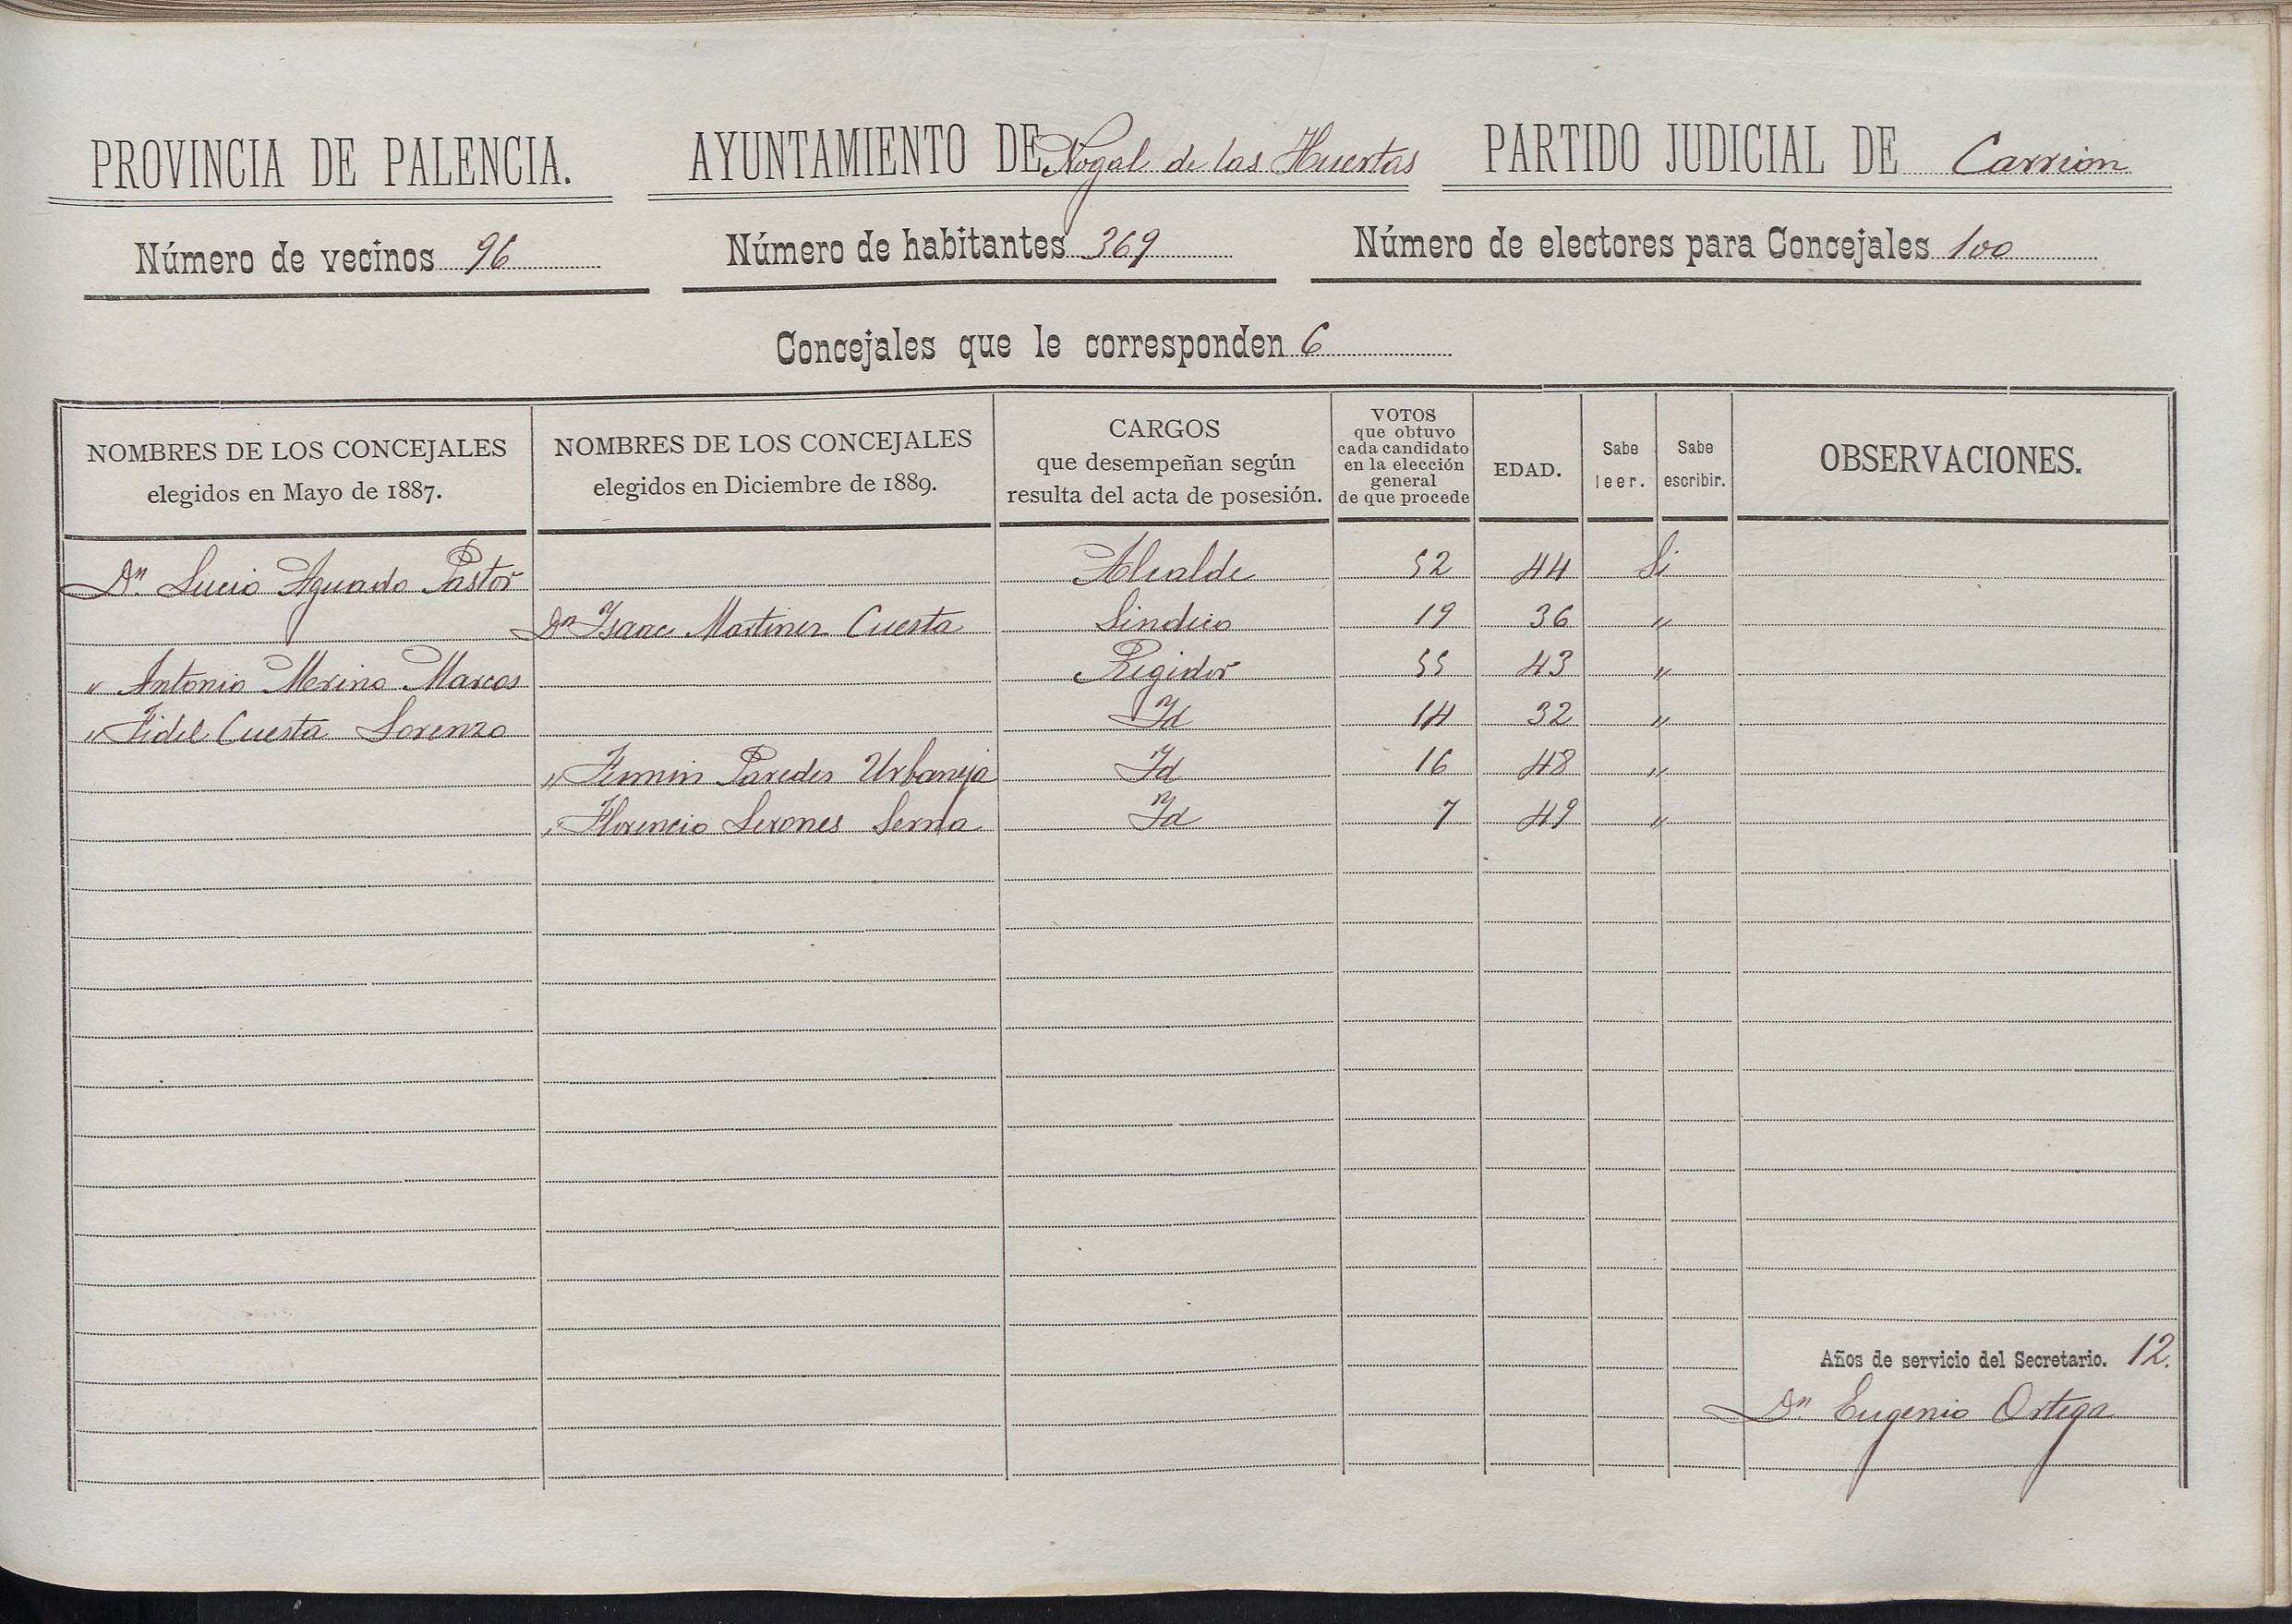 PROVINCIA DE PALENCIA. AYUNTAMIENTO DE Nogal de las Huertas PARTIDO JUDICIAL DE Carrion
Número de vecinos 96 Número de habitantes 369 Número de electores para Concejales 100
Concejales que le corresponden 6
NOMBRES DE LOS CONCEJALES
elegidos en Mayo de 1887.
NOMBRES DE LOS CONCEJALES
elegidos en Diciembre de 1889.
CARGOS
que desempeñan según
resulta del acta de posesión.
VOTOS
que obtuvo
cada candidato
en la elección
general
de que procede
EDAD.
Sabe
leer.
Sabe
escribir.
OBSERVACIONES.
Dn. Lucio Aguado Pastor Alcalde 52 44 Si
Dn Isaac Martinez Cuesta Sindico 19 36 "
" Antonio Merino Marcos Regidor 55 43 "
" Fidel Cuesta Lorenzo Id 14 32 "
" Fermin Paredes Urbaneja Id 16 48 "
" Florencio Lerones Serna Id 7 49 "
Años de servicio del Secretario. 12.
Dn. Eugenio Ortega